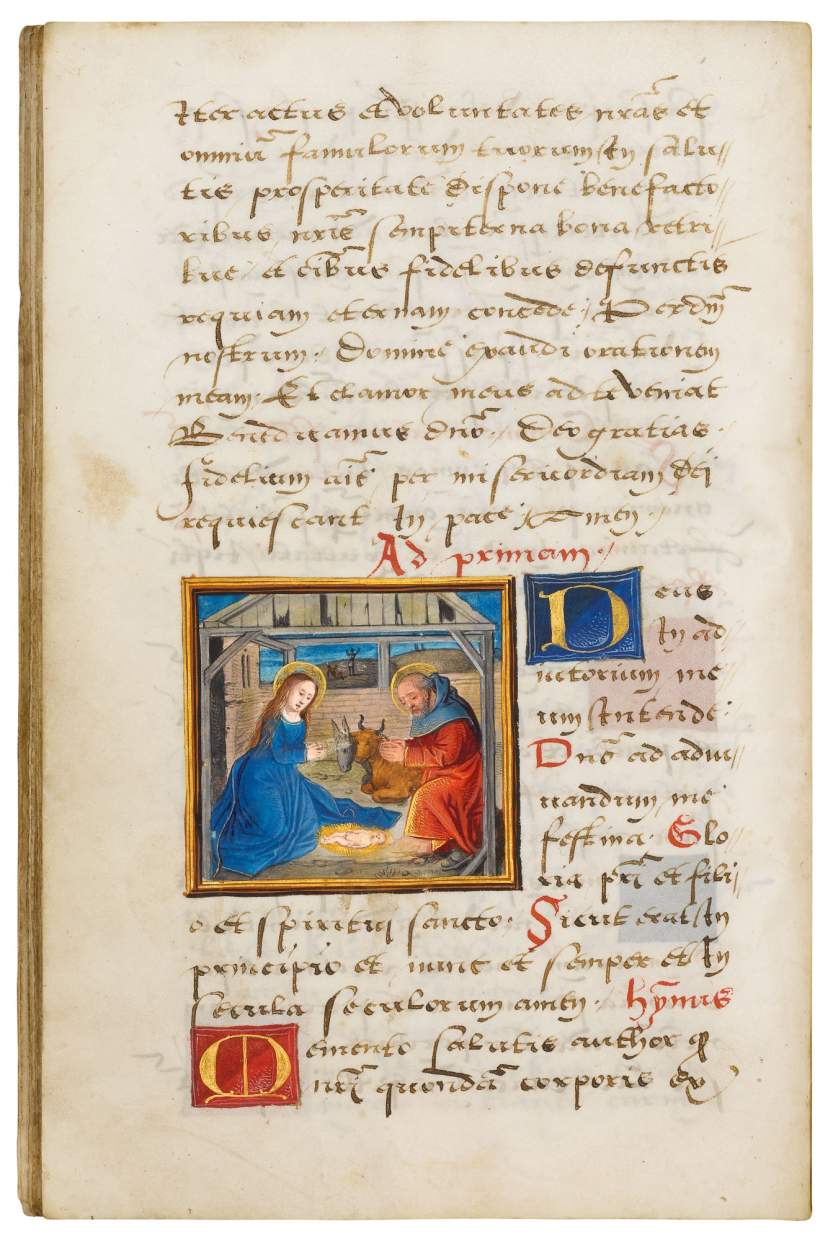 Iter actus et voluntates nr̄as et
omniū famulorum tuorum In salu//
tis prosperitate dispone benefacto//
ribus nr̄is sempiterna bona retri//
bue / et oībus fidelibus defunctis
requiam eternam concede / Per dn̄m
nostrum. Domine exaudi orationem
meam. Et clamor meus ad te veniat
Benedicamus dn̄o. Deo gratias.
fidelium aīe per misericordiam dei
requiescant In pace / Amen /
Ad primam.
Deus
In ad
iutorium me
um Intende.
Dn̄e ad adiu//
uandum me
festina. Glo//
ria pr̄i et fili//
o et spiritui sancto. Sicut erat In
principio et nunc et semper et In
secula seculorum amen. hȳmus
Memento salutis author ꝙ
nr̄i quondā corporis ex